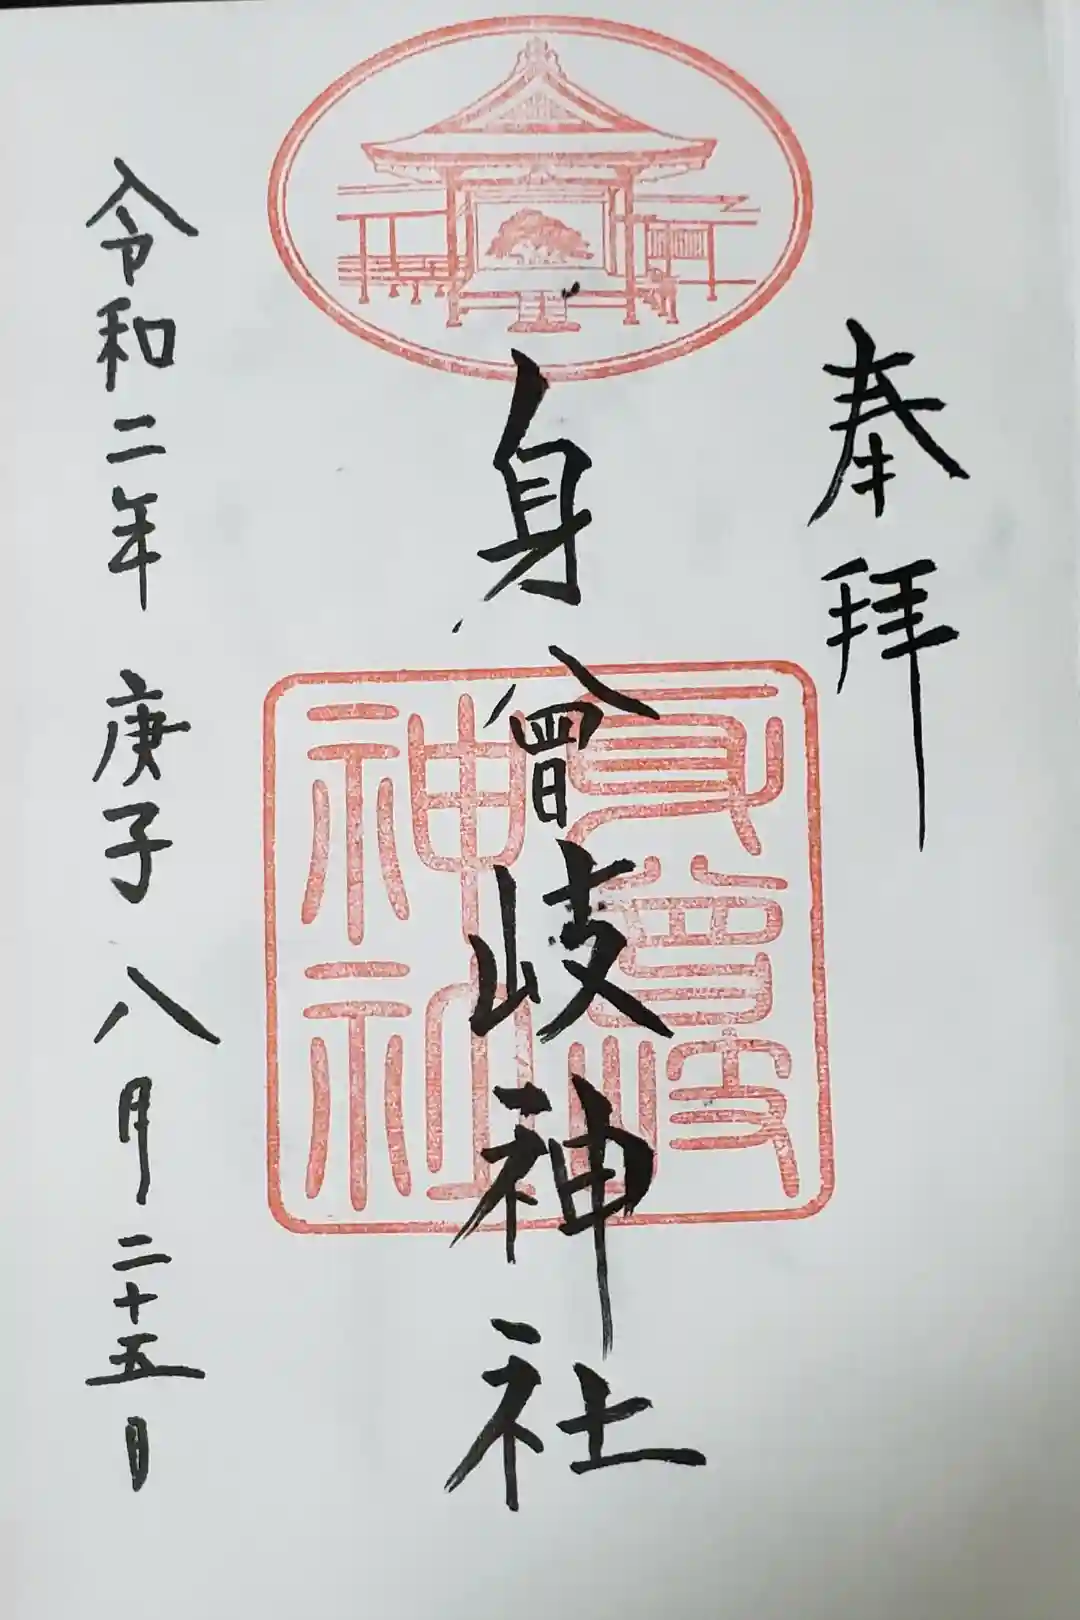 奉拝
身曾岐神社
身曾岐
神社
令和二年 庚子 八月二十五日